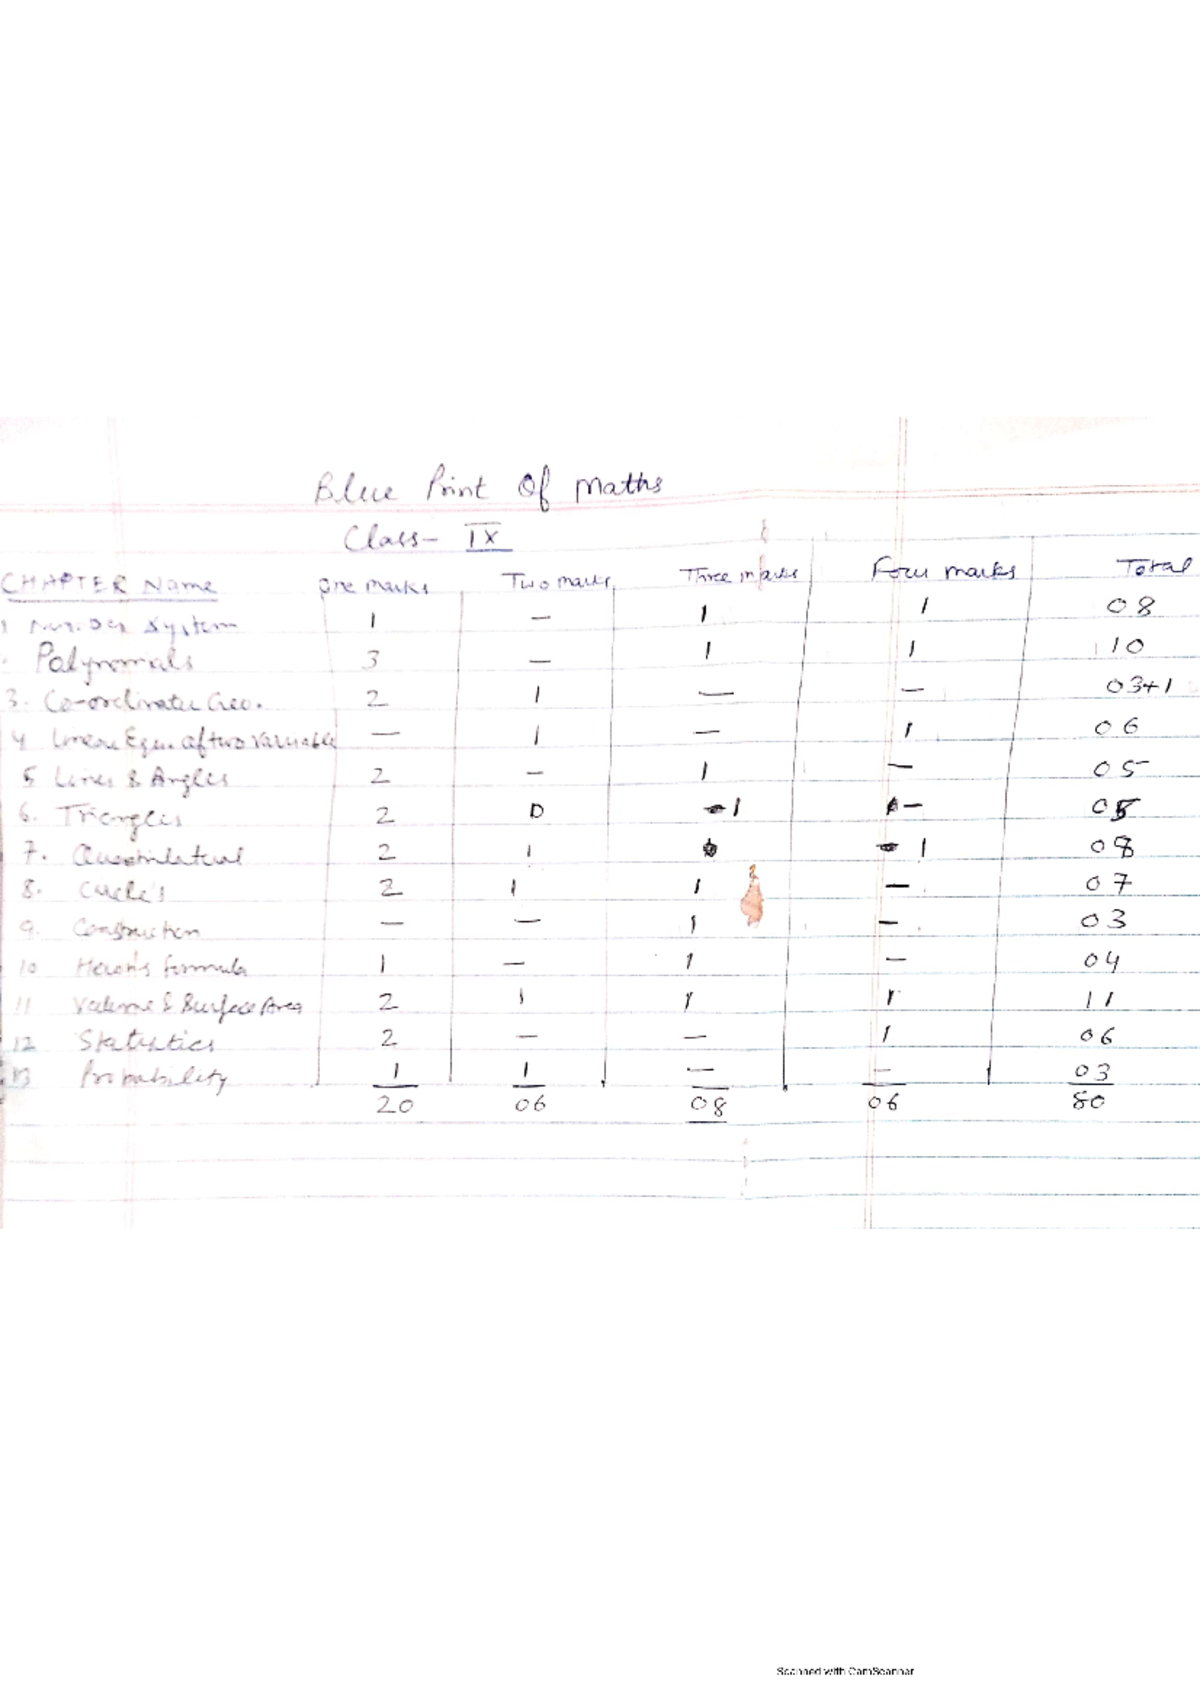 Blue Print Of Maths
Class- IX
CHAPTER Name One marks Two marks Three marks Four marks Total
1 Number System 1 — 1 1 08
Polynomials 3 — 1 1 10
3. Co-ordinate Geo. 2 1 — — 03+1
4 Linear Equ. of two Variables — 1 — 1 06
5 Lines & Angles 2 — 1 — 05
6. Triangles 2 0 1 — 05
7. Quadrilateral 2 1 1 08
8. Circle's 2 1 1 — 07
9. Construction — — 1 — 03
10 Heron's formula 1 — 1 — 04
11 Volume & Surface Area 2 1 1 1 11
12 Statistics 2 — — 1 06
13 Probability 1 1 — — 03
20 06 08 06 80
Scanned with CamScanner